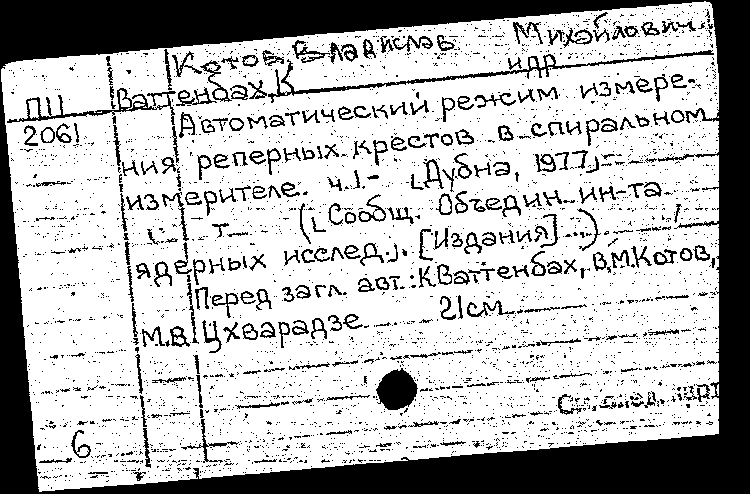 Котов, Владислав Михайлович
и др
П11 Ваттенбах, К
2061 Автоматический режим измере-
ния реперных крестов в спиральном
измерителе. ч.1.- [Дубна, 1977].-
т. ([Сообщ. Объедин. ин-та
ядерных исслед.]. [Издания]...)
Перед загл. авт.: К Ваттенбах, В.М.Котов,
М.В. Цхварадзе 21см
См. след. карт
6